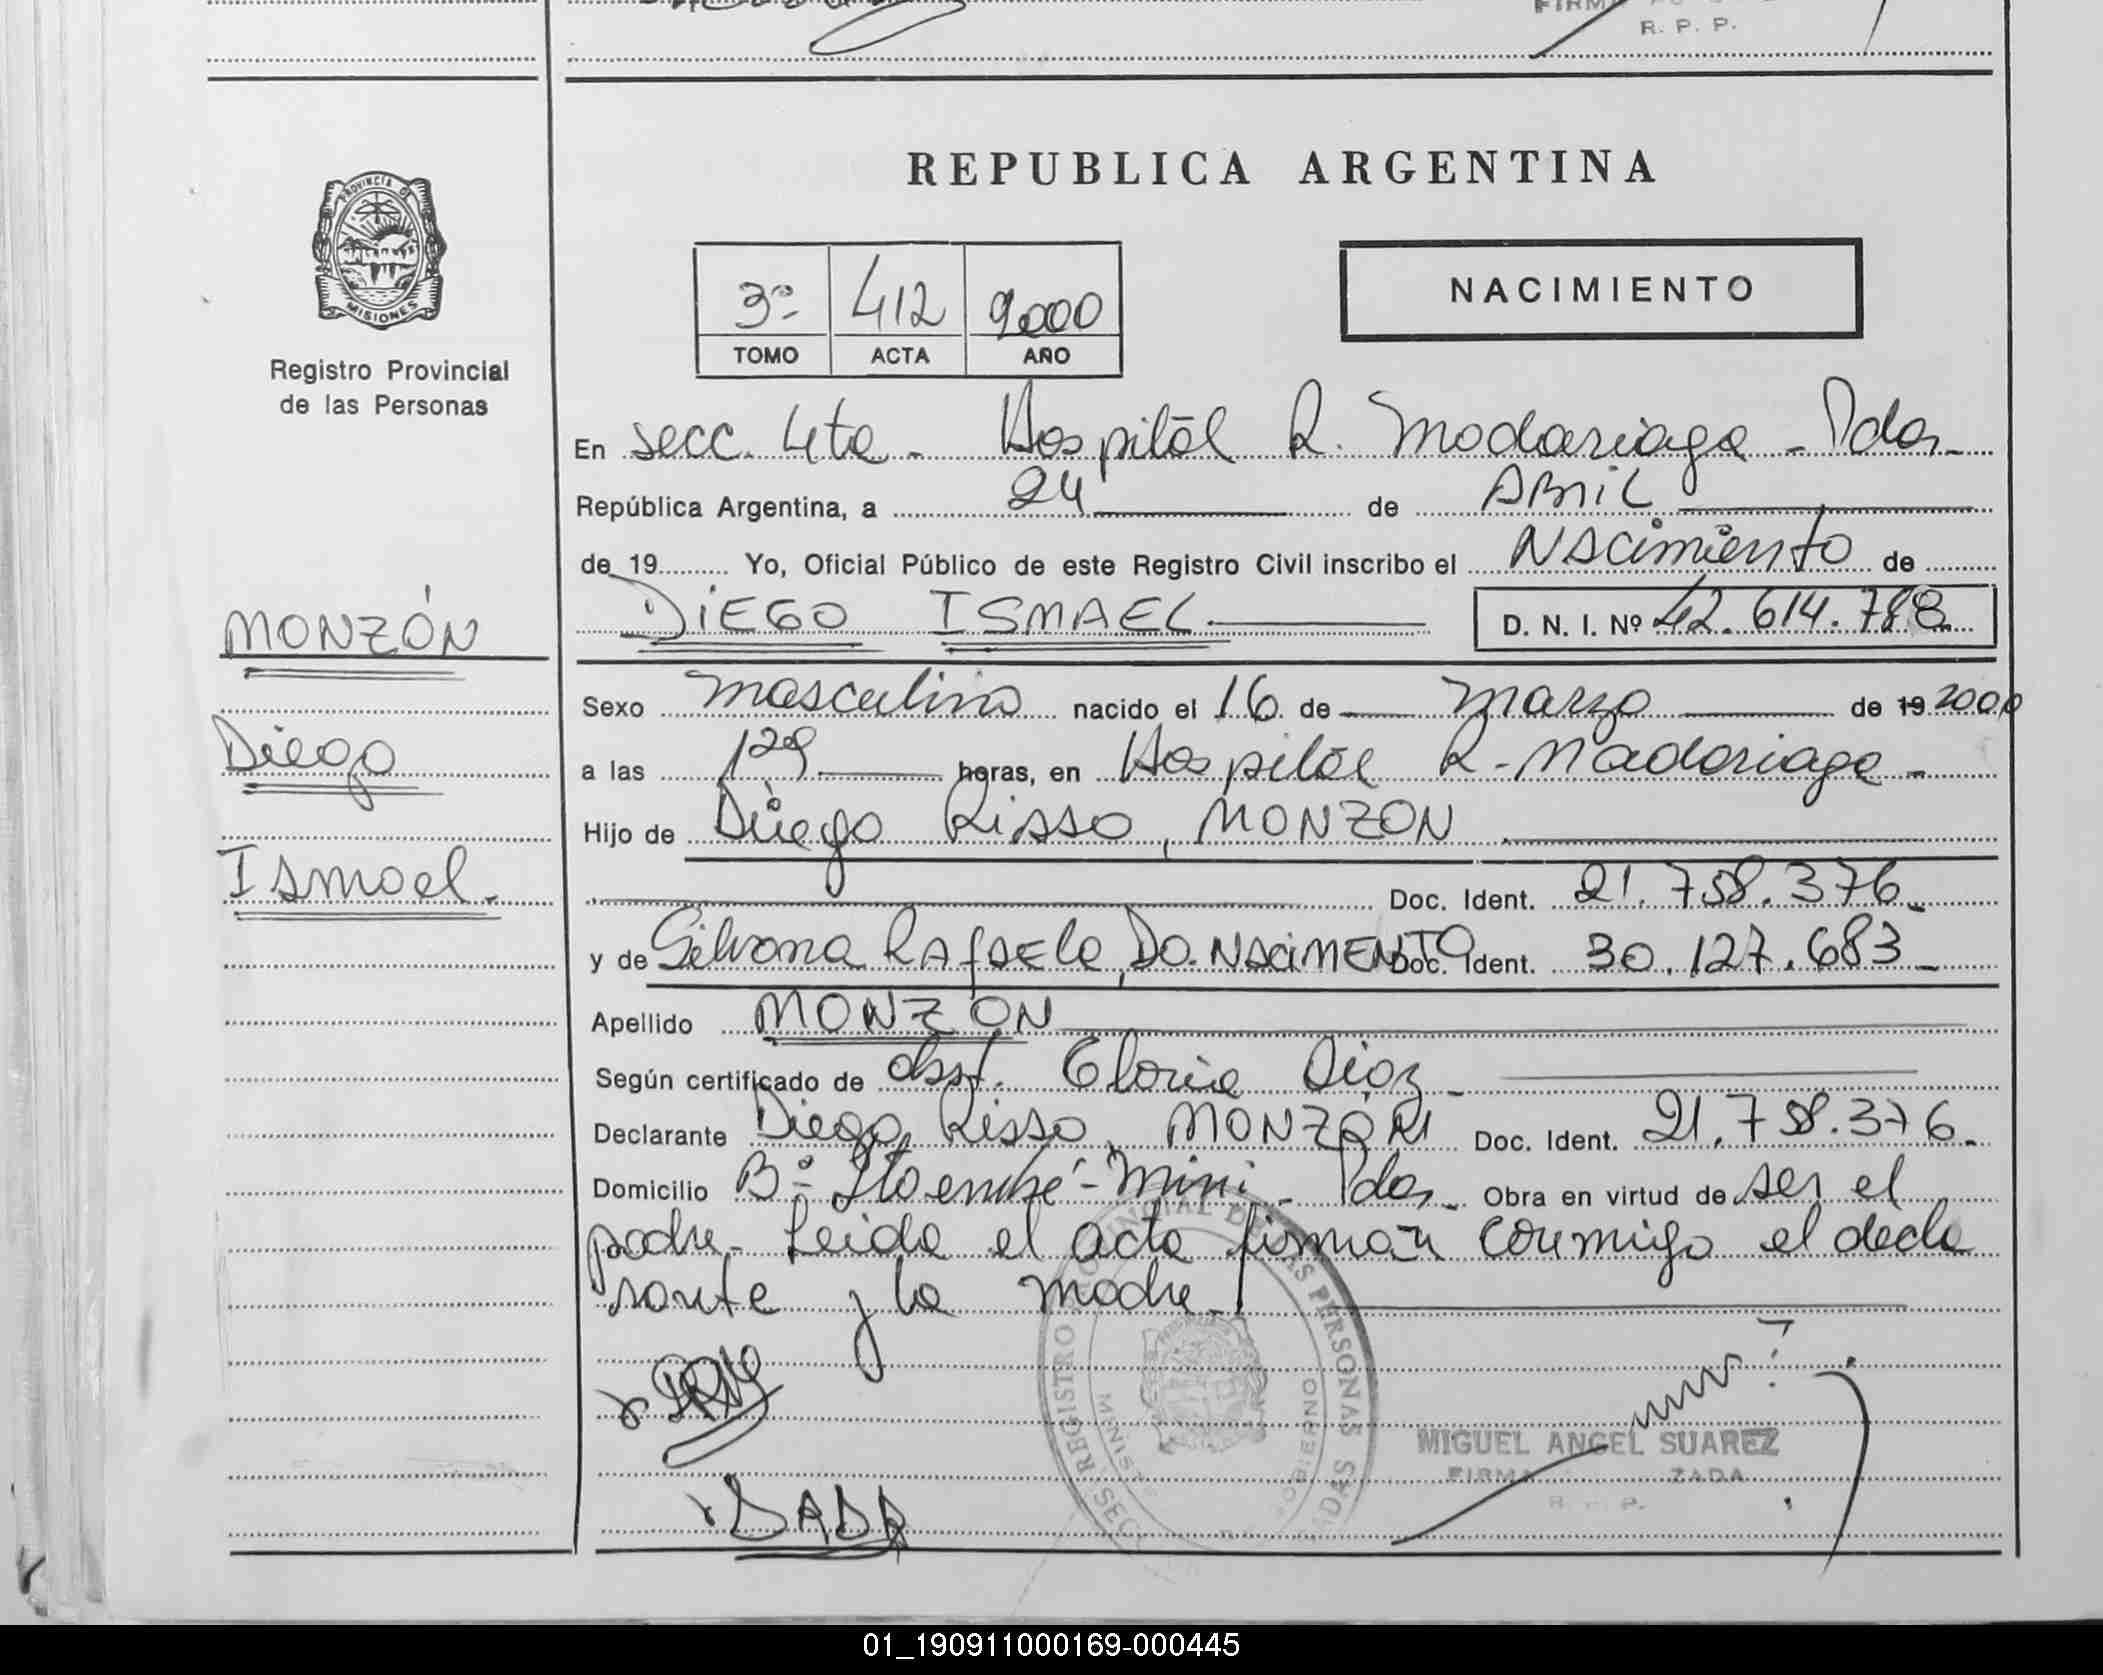 R. P. P.
PROVINCIA DE
MISIONES
Registro Provincial
de las Personas
REPUBLICA ARGENTINA
3º 412 2000
TOMO ACTA AÑO
NACIMIENTO
En secc. 4ta - Hospital R. Madariaga - Pdas -
República Argentina, a 24 de ABRIL
de 19 Yo, Oficial Público de este Registro Civil inscribo el NACIMIENTO de
DIEGO ISMAEL D. N. I. Nº 42.614.788
MONZÓN
Diego
Ismael.
Sexo masculino nacido el 16 de marzo de 19 2000
a las 129 horas, en Hospital R. Madariaga -
Hijo de Diego Risso, MONZON
Doc. Ident. 21.758.376 -
y de Silvana RAFAELA, DO. NASCIMENTO Doc. Ident. 30.127.683 -
Apellido MONZÓN
Según certificado de obst. Gloria Diaz -
Declarante Diego Risso, MONZÓN Doc. Ident. 21.758.376 -
Domicilio Bº Itaembé-Mini - Pdas - Obra en virtud de ser el
padre - Leida el acta firman conmigo el decla
rante y la madre -
REGISTRO PROVINCIAL DE LAS PERSONAS
GOBIERNO
MIGUEL ANGEL SUAREZ
01_190911000169-000445